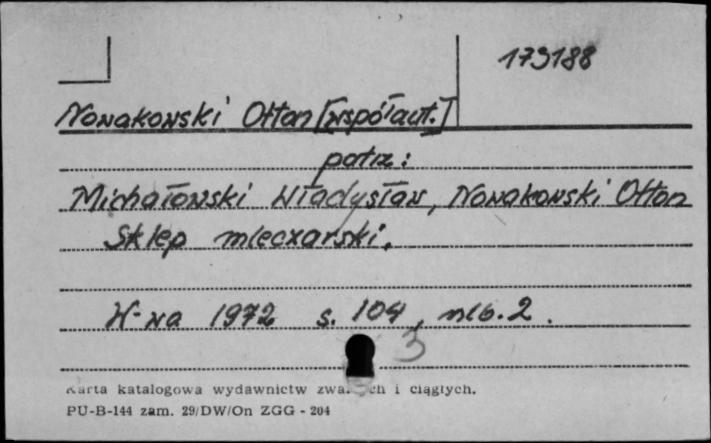 173188
Nowakowski Otton [współaut.]
patrz:
Michałowski Władysław, Nowakowski Otton
Sklep mleczarski.
W-wa 1972 s. 104, nlb. 2.
3
Karta katalogowa wydawnictw i ciągłych.
PU-B-144 zam. 29/DW/On ZGG - 204